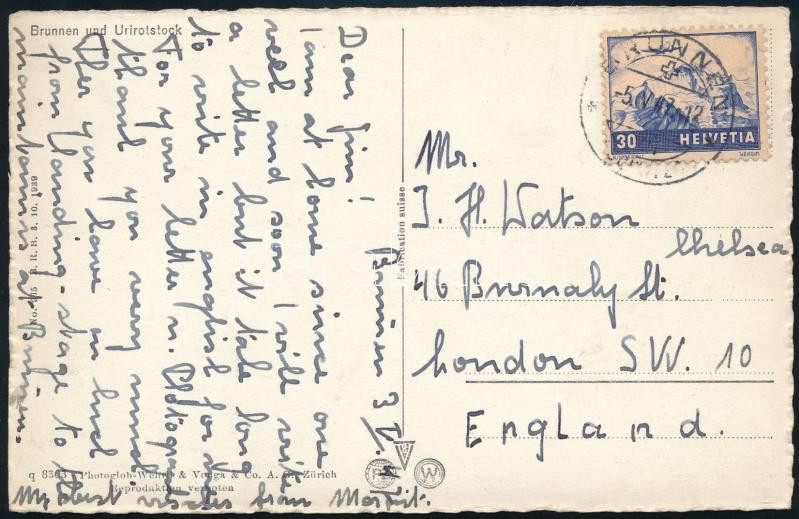 Brunnen und Urirotstock
Brunnen 3 V.
Dear Jim!
I am at home since one
week and soon I will write
a letter but it take long
to write in english for me
For your letter u. Photograph
thank you very much
Ther you have an
from landing-stage to
at Brunnen.
My best wishes from Margrit.
No. R. R. B. 3. 10. 1939
q 8363 Photoglob-Wehrli & Vouga & Co. A. G. Zürich
Reproduktion verboten
Fabrication suisse
BRUNNEN
5. V. 47. 12
30 HELVETIA
Mr.
J. H. Watson
Chelsea
46 Burnaby St.
London SW. 10
England.
W